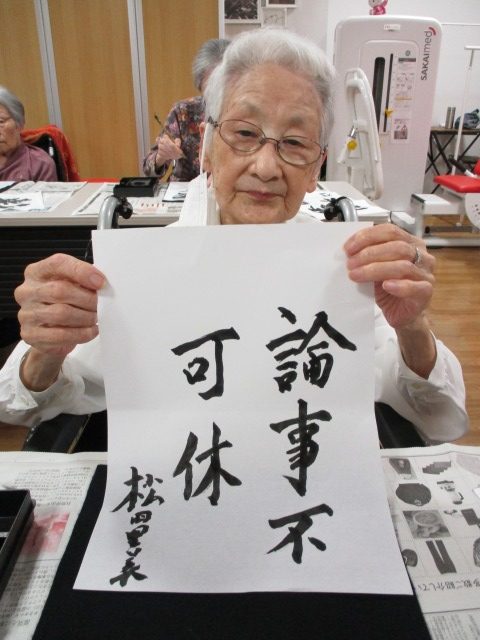 論事不
可休
松里美
SAKAImed